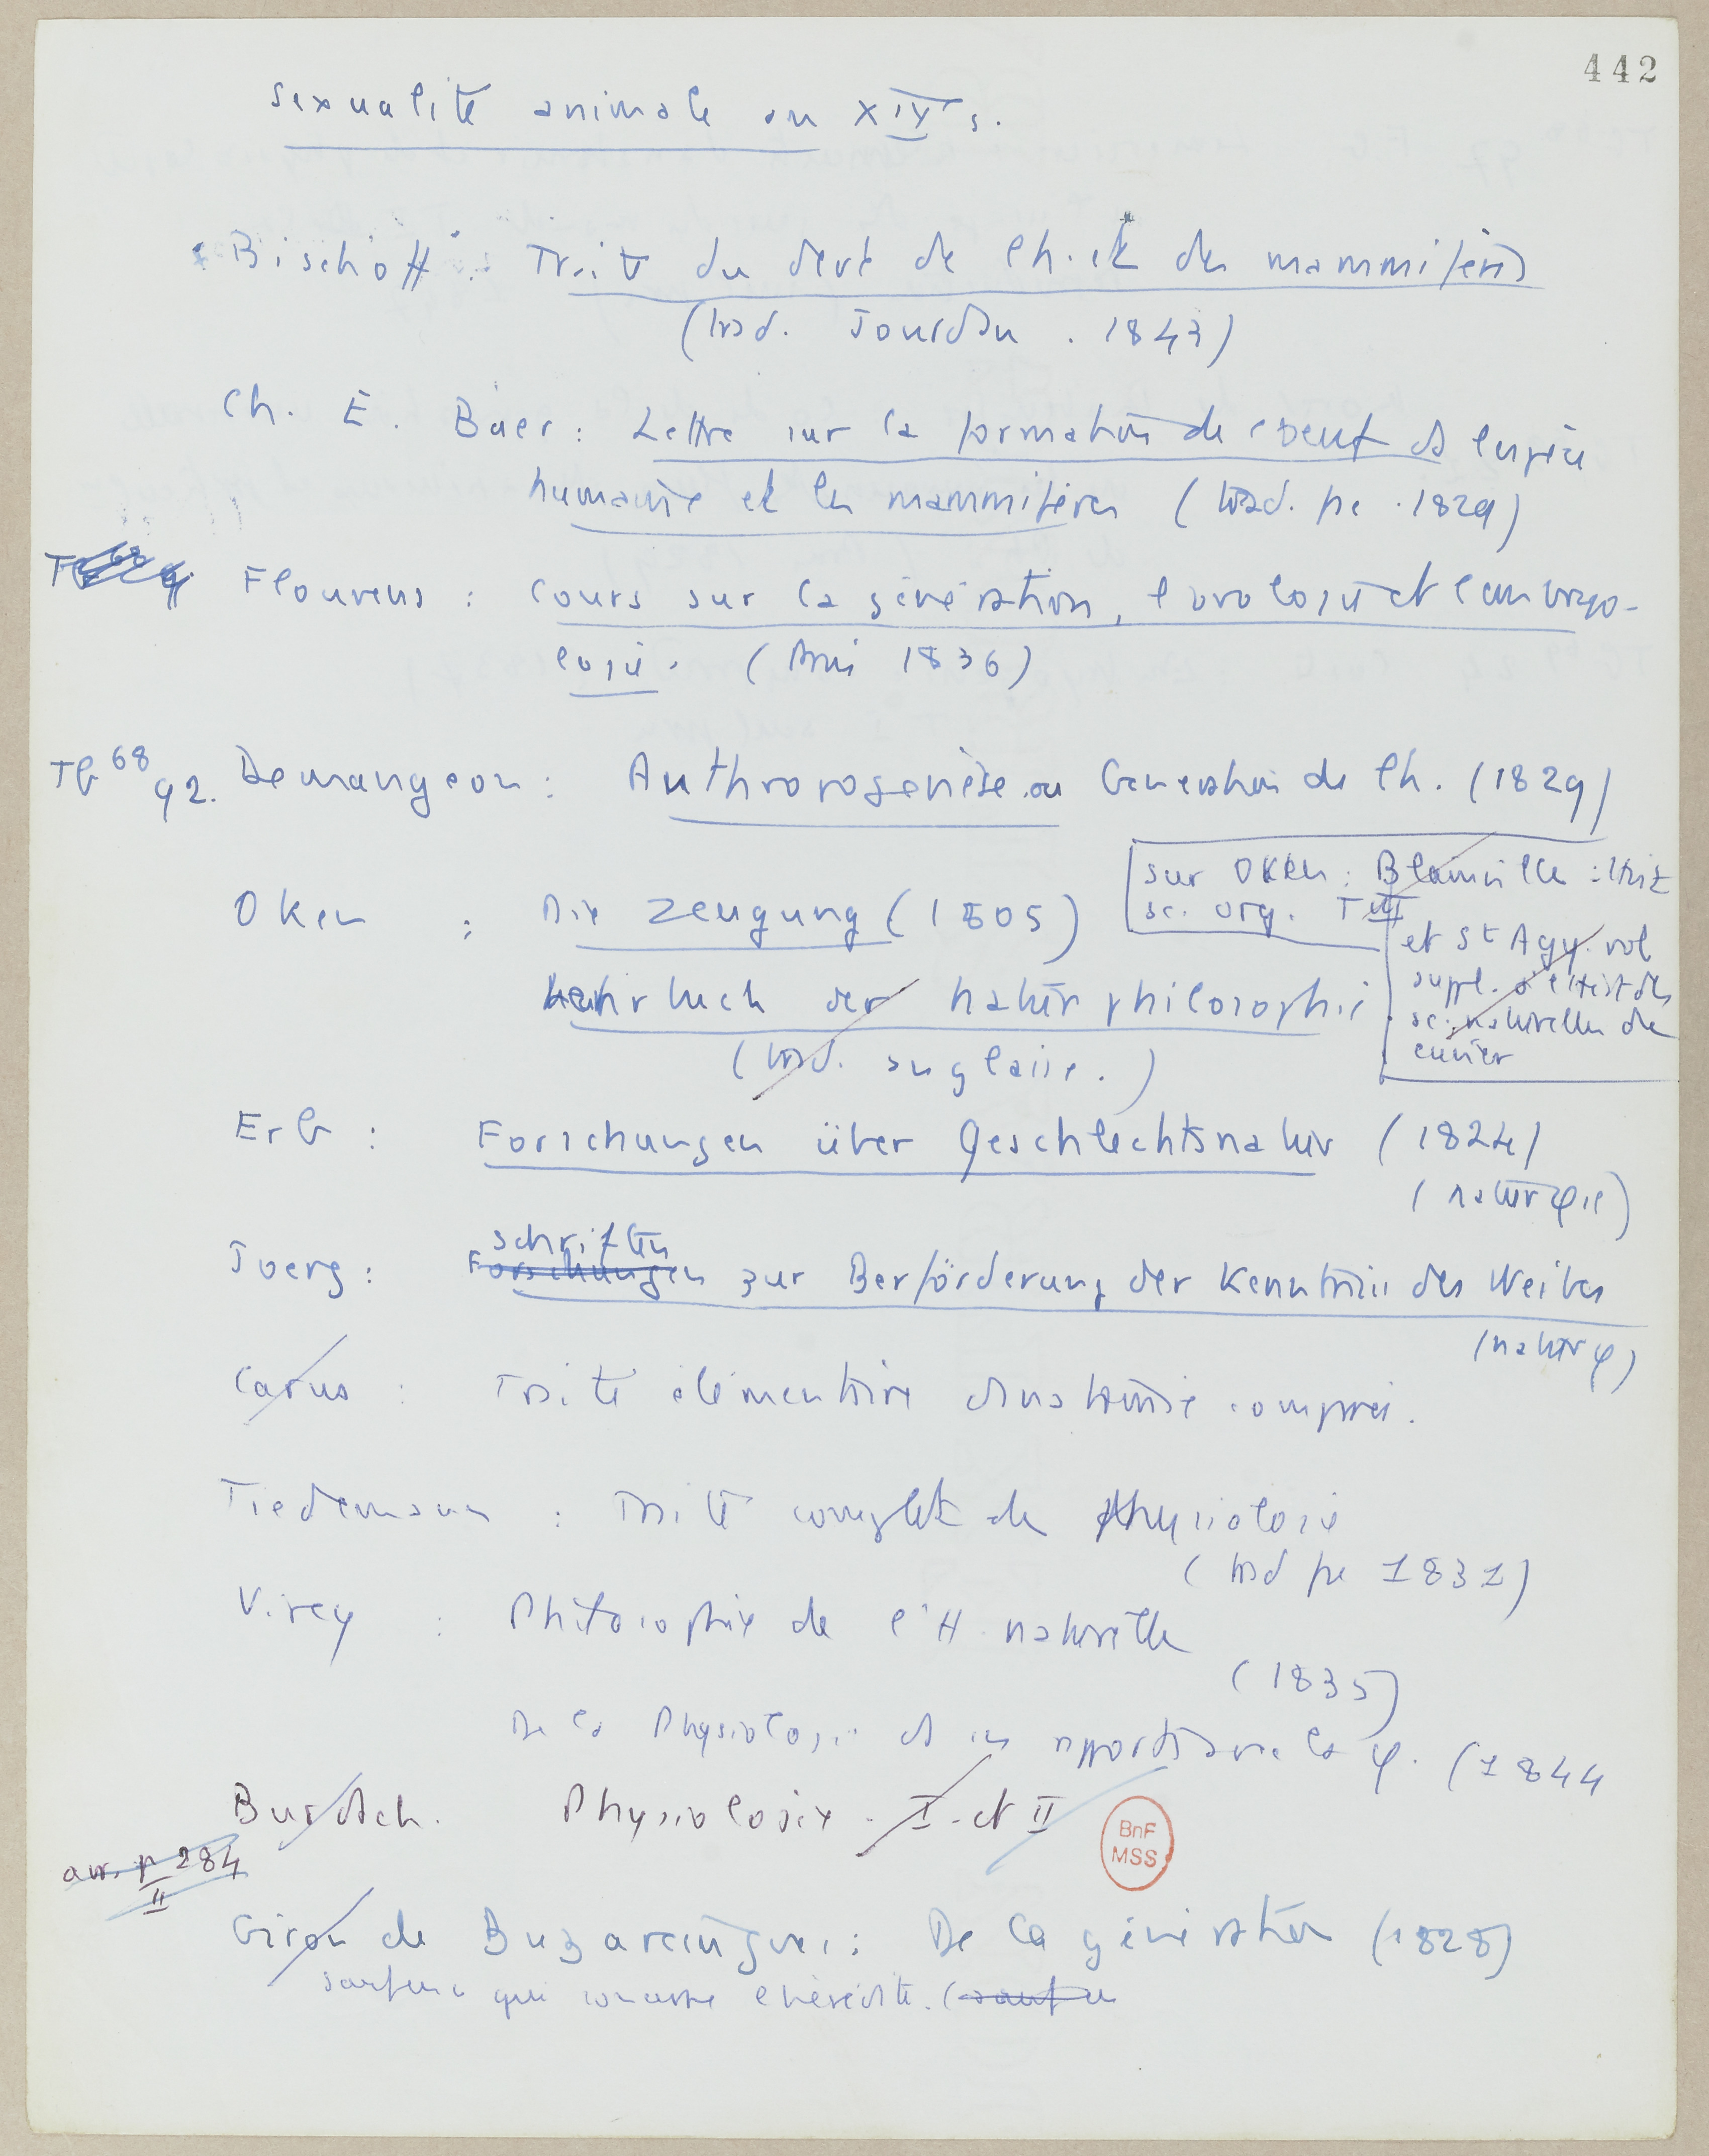 442
sexualité animale au XIXe s.
Bischoff : Traité du devt de l'h. et des mammifères
(trad. Jourdan. 1843)
Ch. E. Baer : Lettre sur la formation de l'oeuf ds l'espèce
humaine et les mammifères (trad. fse. 1829)
Flourens : Cours sur la génération, l'ovologie et l'embryo-
logie. (Paris 1836)
Tb 68
92. Demangeon : Anthropogenèse ou Génération de l'h. (1829)
sur Oken : Blainville : Hist
sc. org. T III
Oken : Die Zeugung (1805)
et St Agy. vol
suppl. à l'Hist des
sc. naturelles de
cuvier
Lehrbuch der naturphilosophie.
(trad. anglaise.)
Erb : Forschungen über Geschlechtsnatur (1824)
(naturφie)
schriften
Joerg : Forschungen zur Berförderung der Kenntniss des Weibes
(naturφ)
Carus : Traité élémentaire d'anatomie comparée.
Tiedemann : Traité complet de physiologie
(trad fse 1831)
Virey : Philosophie de l'H. naturelle
(1835)
De la Physiologie ds ses rapports avec la φ. (1844
Burdach. Physiologie. I. et II
p 284
II
Girou de Buzareingues : De la génération (1828)
surtout qui concerne l'hérédité.